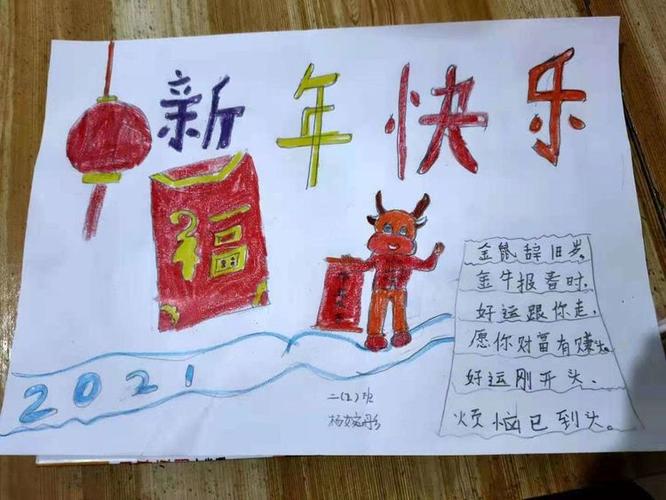 新年快乐
福
金鼠辞旧岁。
金牛报春时,
好运跟你走,
愿你财富有赚头。
好运刚开头、
烦恼已到头。
2021
二(2)班
杨婉彤